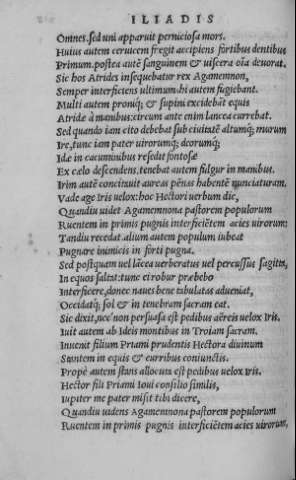 ILIADIS
Omnes. sed uni apparuit perniciosa mors.
Huius autem ceruicem fregit accipiens fortibus dentibus
Primum. postea autē sanguinem & uiscera oīa deuorat.
Sic hos Atrides insequebatur rex Agamemnon,
Semper interficiens ultimum. hi autem fugiebant.
Multi autem proniq; & supini excidebāt equis
Atridæ à manibus: circum ante enim lancea currebat.
Sed quando iam cito debebat sub ciuitatē altumq; murum
Ire, tunc iam pater uirorumq; deorumq;
Idæ in cacuminibus resedit fontosæ
Ex cælo descendens. tenebat autem fulgur in manibus.
Irim autē concitauit aureas pēnas habentē nunciaturam.
Vade age Iris uelox: hoc Hectori uerbum dic,
Quandiu uidet Agamemnona pastorem populorum
Ruentem in primis pugnis interficiētem acies uirorum:
Tandiu recedat. alium autem populum iubeat
Pugnare inimicis in forti pugna.
Sed postquam uel lācea uerberatus uel percussus sagitta,
In equos saltat: tunc ei robur præbebo
Interficere, donec naues bene tabulatas adueniat,
Occidatq; sol & in tenebram sacram eat.
Sic dixit, nec non persuasa est pedibus aëreis uelox Iris.
Iuit autem ab Ideis montibus in Troiam sacram.
Inuenit filium Priami prudentis Hectora diuinum
Stantem in equis & curribus coniunctis.
Propè autem stans allocuta est pedibus uelox Iris.
Hector fili Priami Ioui consilio similis,
Iupiter me pater misit tibi dicere,
Quandiu uidens Agamemnona pastorem populorum
Ruentem in primis pugnis interficiētem acies uirorum,